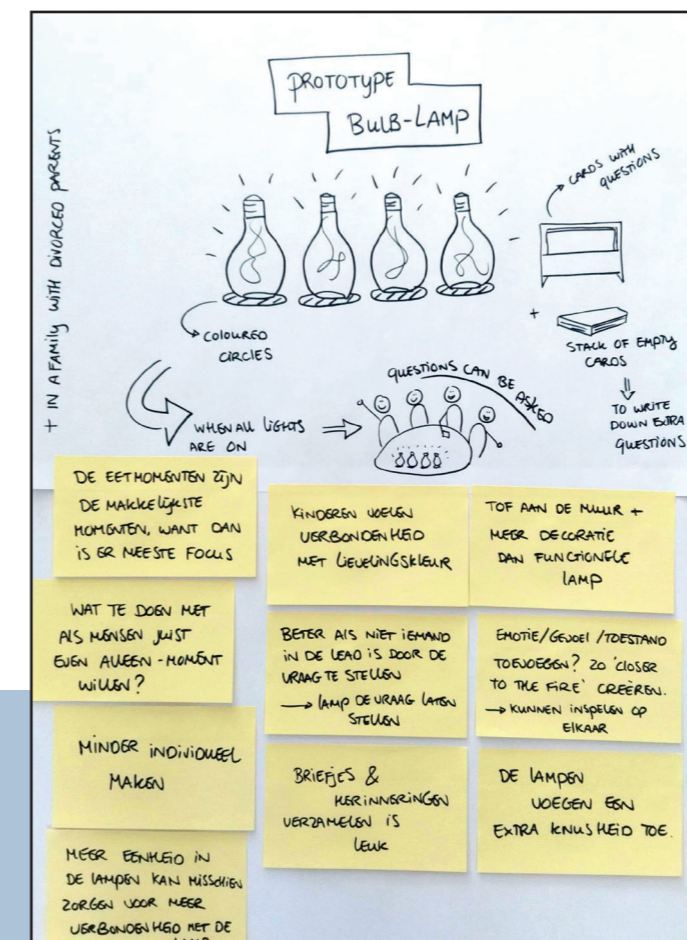 PROTOTYPE
BULB-LAMP
+ IN A FAMILY WITH DIVORCED PARENTS
CARDS WITH
QUESTIONS
COLOURED
CIRCLES
+
STACK OF EMPTY
CARDS
TO WRITE
DOWN EXTRA
QUESTIONS
WHEN ALL LIGHTS
ARE ON
QUESTIONS CAN BE ASKED
DE EETMOMENTEN ZIJN
DE MAKKELIJKSTE
MOMENTEN, WANT DAN
IS ER MEESTE FOCUS
WAT TE DOEN MET
ALS MENSEN JUIST
EVEN ALLEEN-MOMENT
WILLEN?
MINDER INDIVIDUEEL
MAKEN
MEER EENHEID IN
DE LAMPEN KAN MISSCHIEN
ZORGEN VOOR MEER
VERBONDENHEID MET DE
KINDEREN VOELEN
VERBONDENHEID
MET LIEVELINGSKLEUR
BETER ALS NIET IEMAND
IN DE LEAD IS DOOR DE
VRAAG TE STELLEN
→ LAMP DE VRAAG LATEN
STELLEN
BRIEFJES &
HERINNERINGEN
VERZAMELEN IS
LEUK
TOF AAN DE MUUR +
MEER DECORATIE
DAN FUNCTIONELE
LAMP
EMOTIE/GEVOEL/TOESTAND
TOEVOEGEN? ZO 'CLOSER
TO THE FIRE' CREËREN.
→ KUNNEN INSPELEN OP
ELKAAR
DE LAMPEN
VOEGEN EEN
EXTRA KNUSHEID TOE.